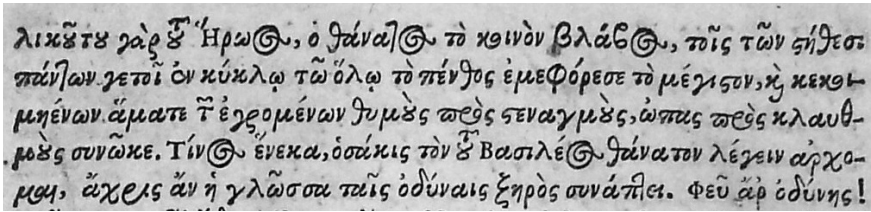 λικούτου γὰρ τοῦ Ἥρωος, ὁ θάνατος τὸ κοινὸν βλάβος, τοῖς τῶν στήθεσι
πάντων γετοῖ ἐν κύκλῳ τῷ ὅλῳ τὸ πένθος ἐμεφόρεσε τὸ μέγιστον, καὶ κεκοι-
μηένων ἅματε τῶν ἐγρομένων θυμοὺς πρὸς στεναγμοὺς, ὦπας πρὸς κλαυθ-
μοὺς συνῶκε. Τίνος ἕνεκα, ὁσάκις τὸν τοῦ Βασιλέος θάνατον λέγειν αρχο-
μαι, ἄχρις ἂν ἡ γλῶσσα ταῖς ὀδύναις ξηρὸς συνάπτει. Φεῦ ἄρ ὀδύνης!